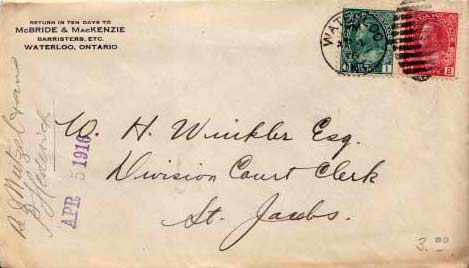 RETURN IN TEN DAYS TO
MCBRIDE & MACKENZIE
BARRISTERS, ETC.
WATERLOO, ONTARIO
WATERLOO
W. H. Winkler Esq.
Division Court Clerk
St. Jacobs.
APR 5 1916
3.00